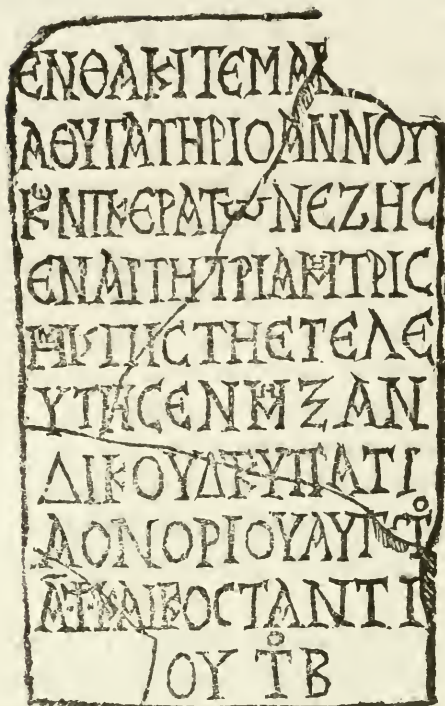 ΕΝΘΑΚΙΤΕΜΑΚ
ΑΘΥΓΑΤΗΡΙΟΑΝΝΟΥ
ΚΕΝΠΚΕΡΑΤωΝΕΖΗϹ
ΕΝΑΙΤΗΤΡΙΑΜΗΤΡΙϹ
ΗΜΙϹΠΙϹΤΗΕΤΕΛΕ
ΥΤΗϹΕΝΜΗΞΑΝ
ΔΙΚΟΥΔΚΥΠΑΤΙ
ΑΟΝΟΡΙΟΥΑΥΓϹΤο
ΚΑΙΚΟϹΤΑΝΤΙ
ΟΥ ΤοΒ